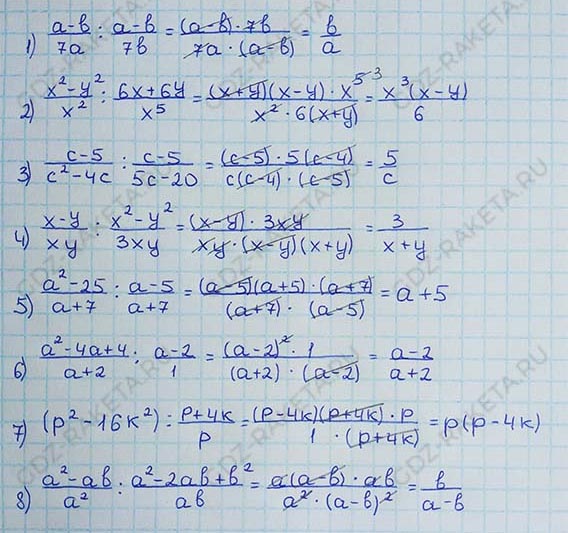 1) (a-b)/7a : (a-b)/7b = ((a-b)·7b)/(7a·(a-b)) = b/a
2) (x²-y²)/x² : (6x+6y)/x⁵ = ((x+y)(x-y)·x⁵ ³)/(x²·6(x+y)) = x³(x-y)/6
3) (c-5)/(c²-4c) : (c-5)/(5c-20) = ((c-5)·5(c-4))/(c(c-4)·(c-5)) = 5/c
4) (x-y)/xy : (x²-y²)/3xy = ((x-y)·3xy)/(xy·(x-y)(x+y)) = 3/(x+y)
5) (a²-25)/(a+7) : (a-5)/(a+7) = ((a-5)(a+5)·(a+7))/((a+7)·(a-5)) = a+5
6) (a²-4a+4)/(a+2) : (a-2)/1 = ((a-2)²·1)/((a+2)·(a-2)) = (a-2)/(a+2)
7) (p²-16k²) : (p+4k)/p = ((p-4k)(p+4k)·p)/(1·(p+4k)) = p(p-4k)
8) (a²-ab)/a² : (a²-2ab+b²)/ab = (a(a-b)·ab)/(a²·(a-b)²) = b/(a-b)
GDZ-RAKETA.RU